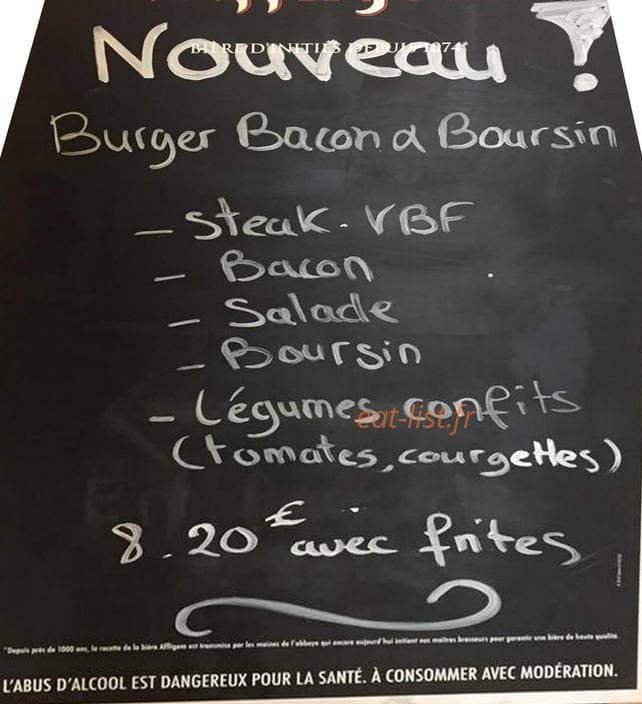 BIÈRE D'INITIÉS DEPUIS 1074
Nouveau !
Burger Bacon & Boursin
- Steak. VBF
- Bacon
- Salade
- Boursin
- Légumes confits
eat-list.fr
(tomates, courgettes)
8.20€ avec frites
"Depuis près de 1000 ans, la recette de la bière Affligem est transmise par les moines de l'abbaye qui encore aujourd'hui initient nos maîtres brasseurs pour garantir une bière de haute qualité.
L'ABUS D'ALCOOL EST DANGEREUX POUR LA SANTÉ. À CONSOMMER AVEC MODÉRATION.